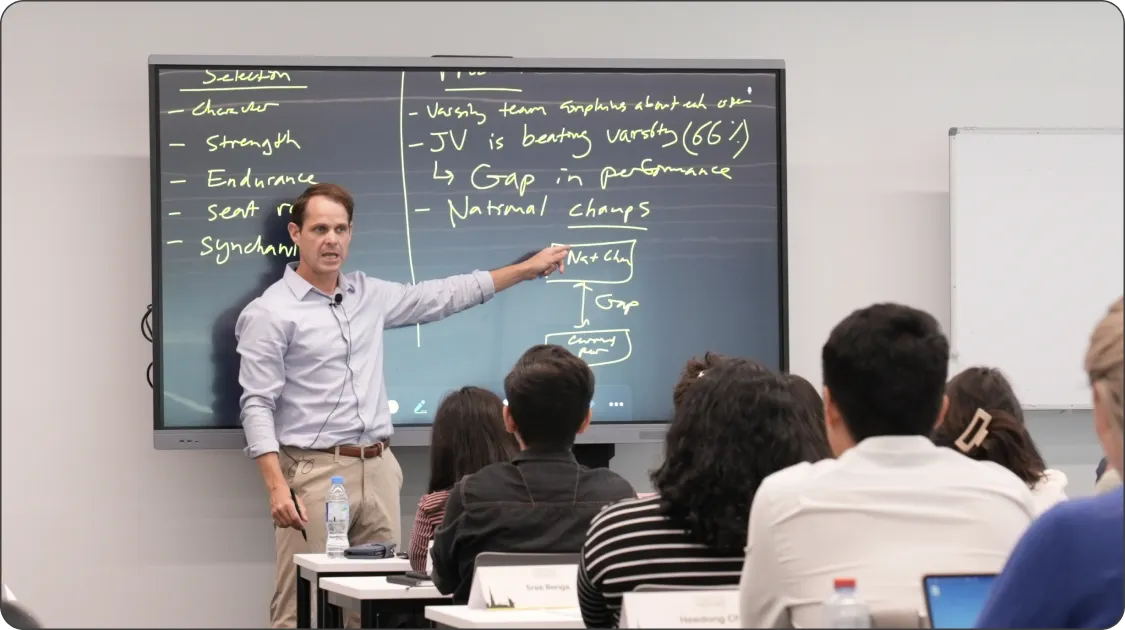 Selection
- Character
- Strength
- Endurance
- Seat
- Varsity team complains about each other
- JV is beating varsity (66%)
↳ Gap in performance
- National champs
Nat Cham
Gap
Sree Renga
Heedong